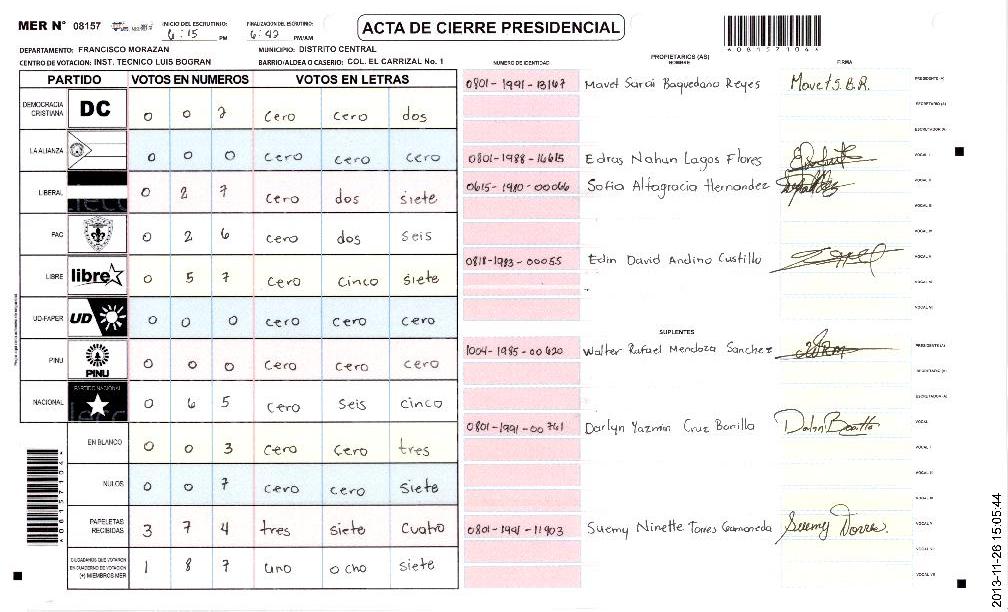 MER N° 08157 INICIO DEL ESCRUTINIO: 6:15 PM FINALIZACION DEL ESCRUTINIO: 6:42 PM/AM
ACTA DE CIERRE PRESIDENCIAL
4081571064
DEPARTAMENTO: FRANCISCO MORAZAN MUNICIPIO: DISTRITO CENTRAL
CENTRO DE VOTACION: INST. TECNICO LUIS BOGRAN BARRIO/ALDEA O CASERIO: COL. EL CARRIZAL No. 1
NUMERO DE IDENTIDAD PROPIETARIOS (AS) NOMBRE FIRMA
PARTIDO VOTOS EN NUMEROS VOTOS EN LETRAS
DEMOCRACIA CRISTIANA DC 0 0 2 cero cero dos
LA ALIANZA 0 0 0 cero cero cero
LIBERAL 0 2 7 cero dos siete
PAC 0 2 6 cero dos seis
LIBRE libre 0 5 7 cero cinco siete
UD-FAPER UD 0 0 0 cero cero cero
PINU PINU 0 0 0 cero cero cero
NACIONAL PARTIDO NACIONAL 0 6 5 cero seis cinco
EN BLANCO 0 0 3 cero cero tres
NULOS 0 0 7 cero cero siete
PAPELETAS RECIBIDAS 3 7 4 tres siete cuatro
CIUDADANOS QUE VOTARON EN CUADERNO DE VOTACION (+) MIEMBROS MER 1 8 7 uno ocho siete
0801-1991-13167 Mavet Sarai Baquedano Reyes Mavet S.B.R. PRESIDENTE (A)
SECRETARIO (A)
ESCRUTADOR (A)
0801-1988-14615 Edras Nahun Lagos Flores VOCAL I
0615-1980-00066 Sofia Altagracia Hernandez VOCAL II
VOCAL III
VOCAL IV
0818-1983-00055 Edin David Andino Custillo VOCAL V
VOCAL VI
VOCAL VII
SUPLENTES
1004-1985-00420 Walter Rafael Mendoza Sanchez PRESIDENTE (A)
SECRETARIO (A)
ESCRUTADOR (A)
0801-1991-00761 Darlyn Yazmin Cruz Bonilla VOCAL
VOCAL II
VOCAL III
VOCAL IV
0801-1991-11903 Suemy Ninette Torres Suemy Torres. VOCAL V
VOCAL VI
VOCAL VII
4081571064
2013-11-26 15:05:44